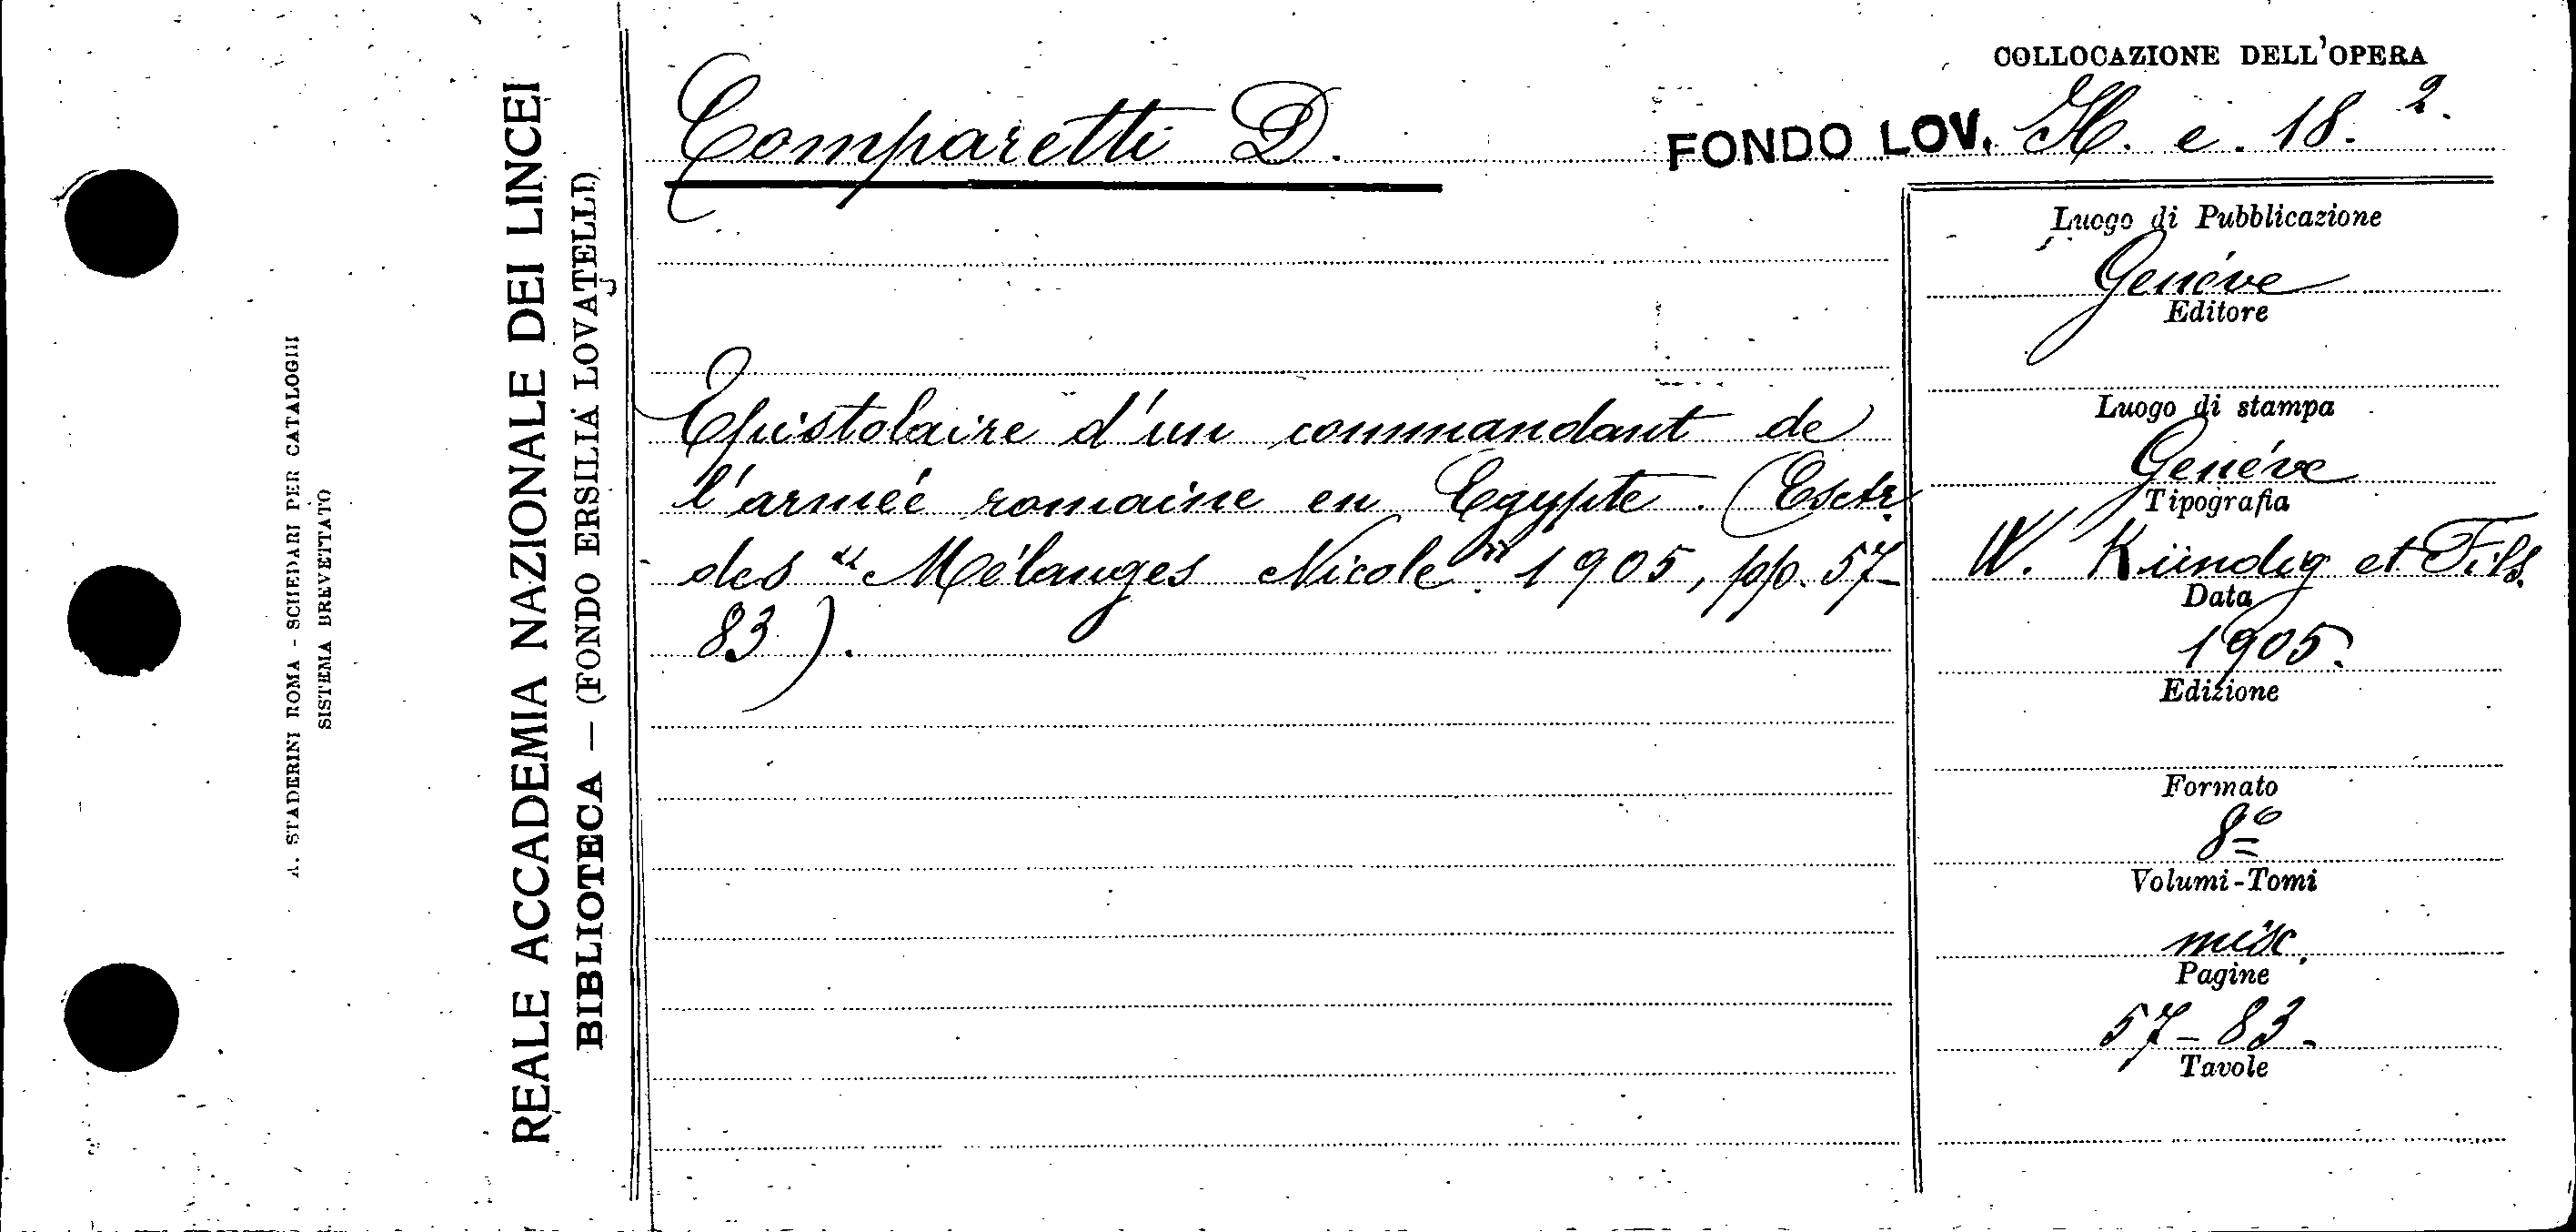 COLLOCAZIONE DELL'OPERA
Comparetti D.
FONDO LOV. H. e. 18. 2.
Epistolaire d'un commandant de
l'armée romaine en Egypte. (Esctr.
des "Mélanges Nicole" 1905, pp. 57-
83).
Luogo di Pubblicazione
Genéve
Editore
Luogo di stampa
Genéve
Tipografia
W. Kündig et Fils.
Data
1905.
Edizione
Formato
8º
Volumi-Tomi
misc.
Pagine
57-83.
Tavole
REALE ACCADEMIA NAZIONALE DEI LINCEI
BIBLIOTECA — (FONDO ERSILIA LOVATELLI)
A. STADERINI ROMA - SCHEDARI PER CATALOGHI
SISTEMA BREVETTATO